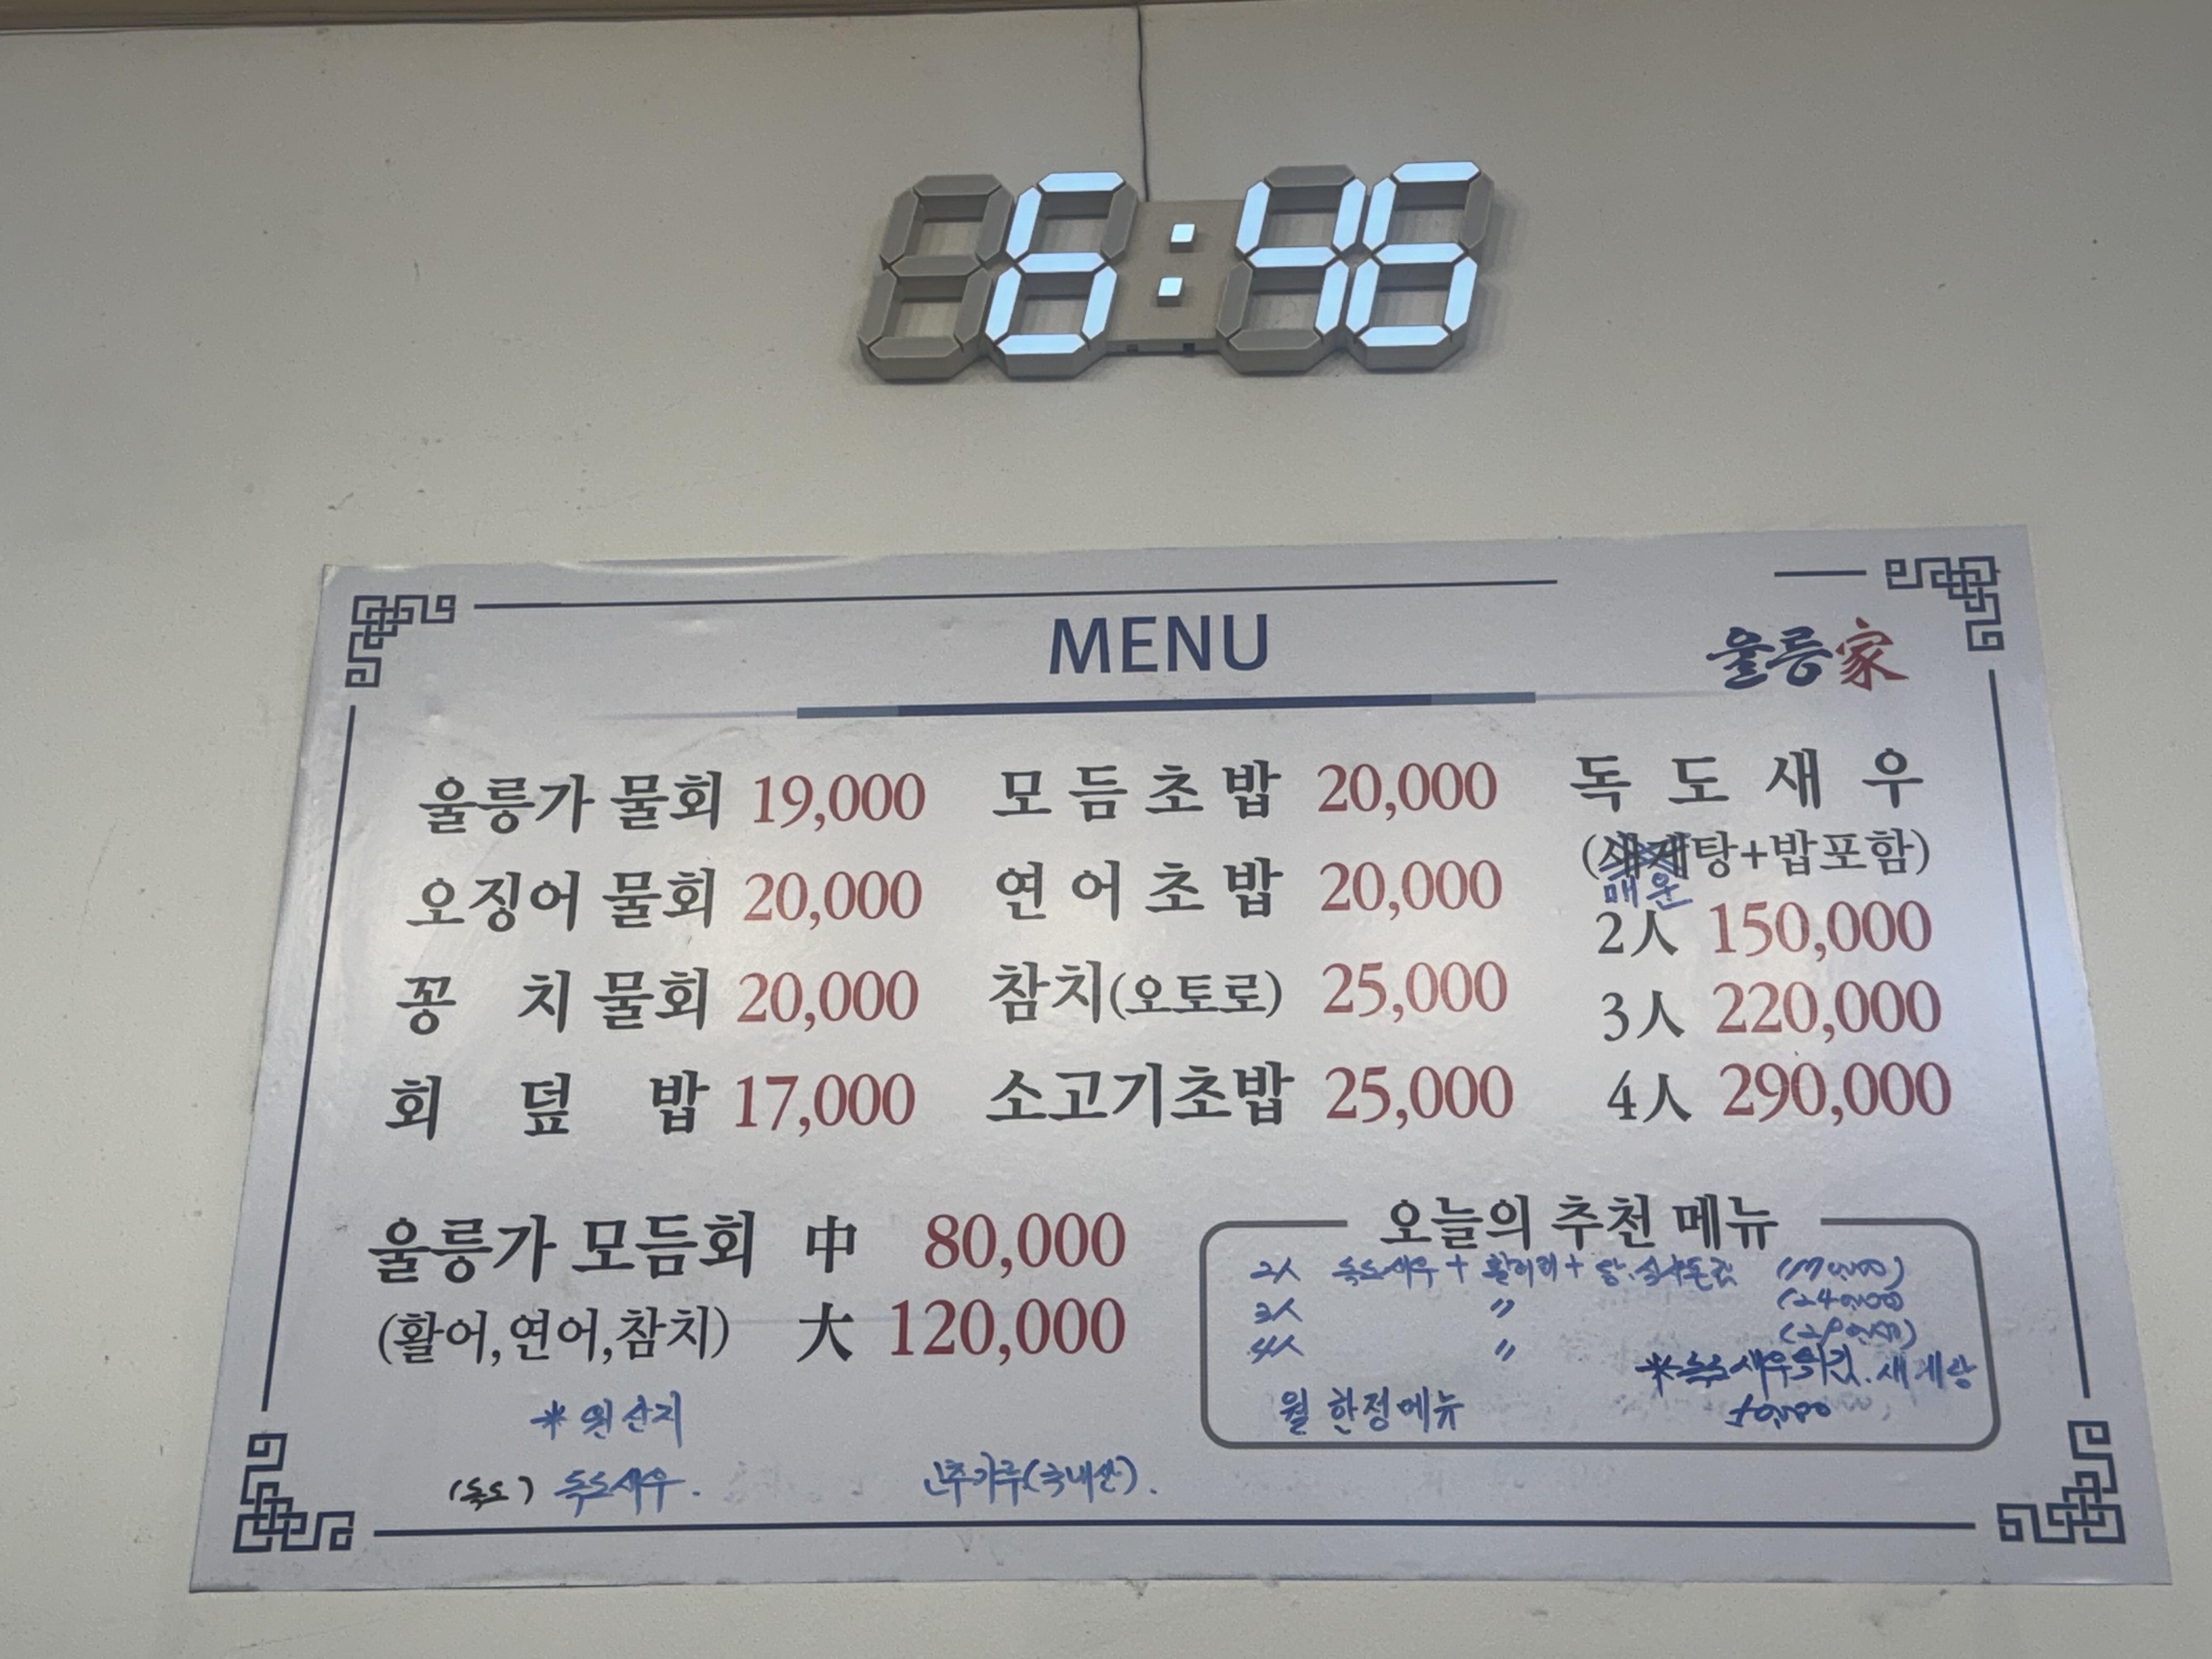 6:46
MENU
울릉家
울릉가 물회 19,000
오징어 물회 20,000
꽁치 물회 20,000
회덮밥 17,000
모듬초밥 20,000
연어초밥 20,000
참치(오토로) 25,000
소고기초밥 25,000
독도새우
(새게탕+밥포함)
매운
2人 150,000
3人 220,000
4人 290,000
울릉가 모듬회 中 80,000
(활어,연어,참치) 大 120,000
오늘의 추천 메뉴
2人 독도새우 +
3人 〃
4人 〃
*독도새우
월 한정메뉴
* 원산지
(독도) 독도새우.
고추가루(국내산).